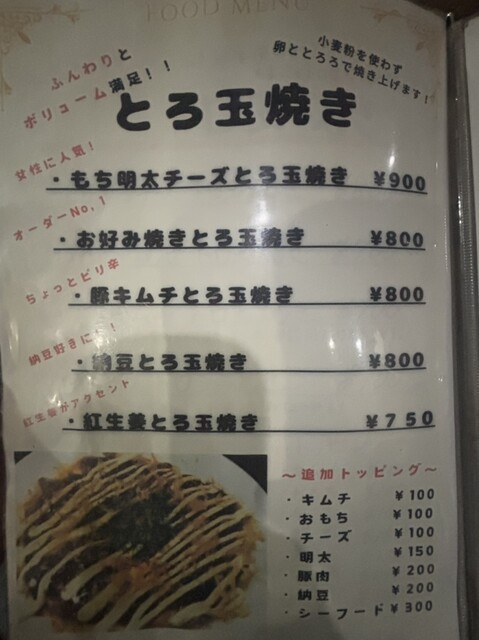 FOOD MENU
ふんわりと
ボリューム満足！！
小麦粉を使わず
卵ととろろで焼き上げます！
とろ玉焼き
女性に人気！
・もち明太チーズとろ玉焼き ¥900
オーダーNo,1
・お好み焼きとろ玉焼き ¥800
ちょっとピリ辛
・豚キムチとろ玉焼き ¥800
納豆好きに
・納豆とろ玉焼き ¥800
紅生姜がアクセント
・紅生姜とろ玉焼き ¥750
〜追加トッピング〜
・キムチ ¥100
・おもち ¥100
・チーズ ¥100
・明太 ¥150
・豚肉 ¥200
・納豆 ¥200
・シーフード ¥300